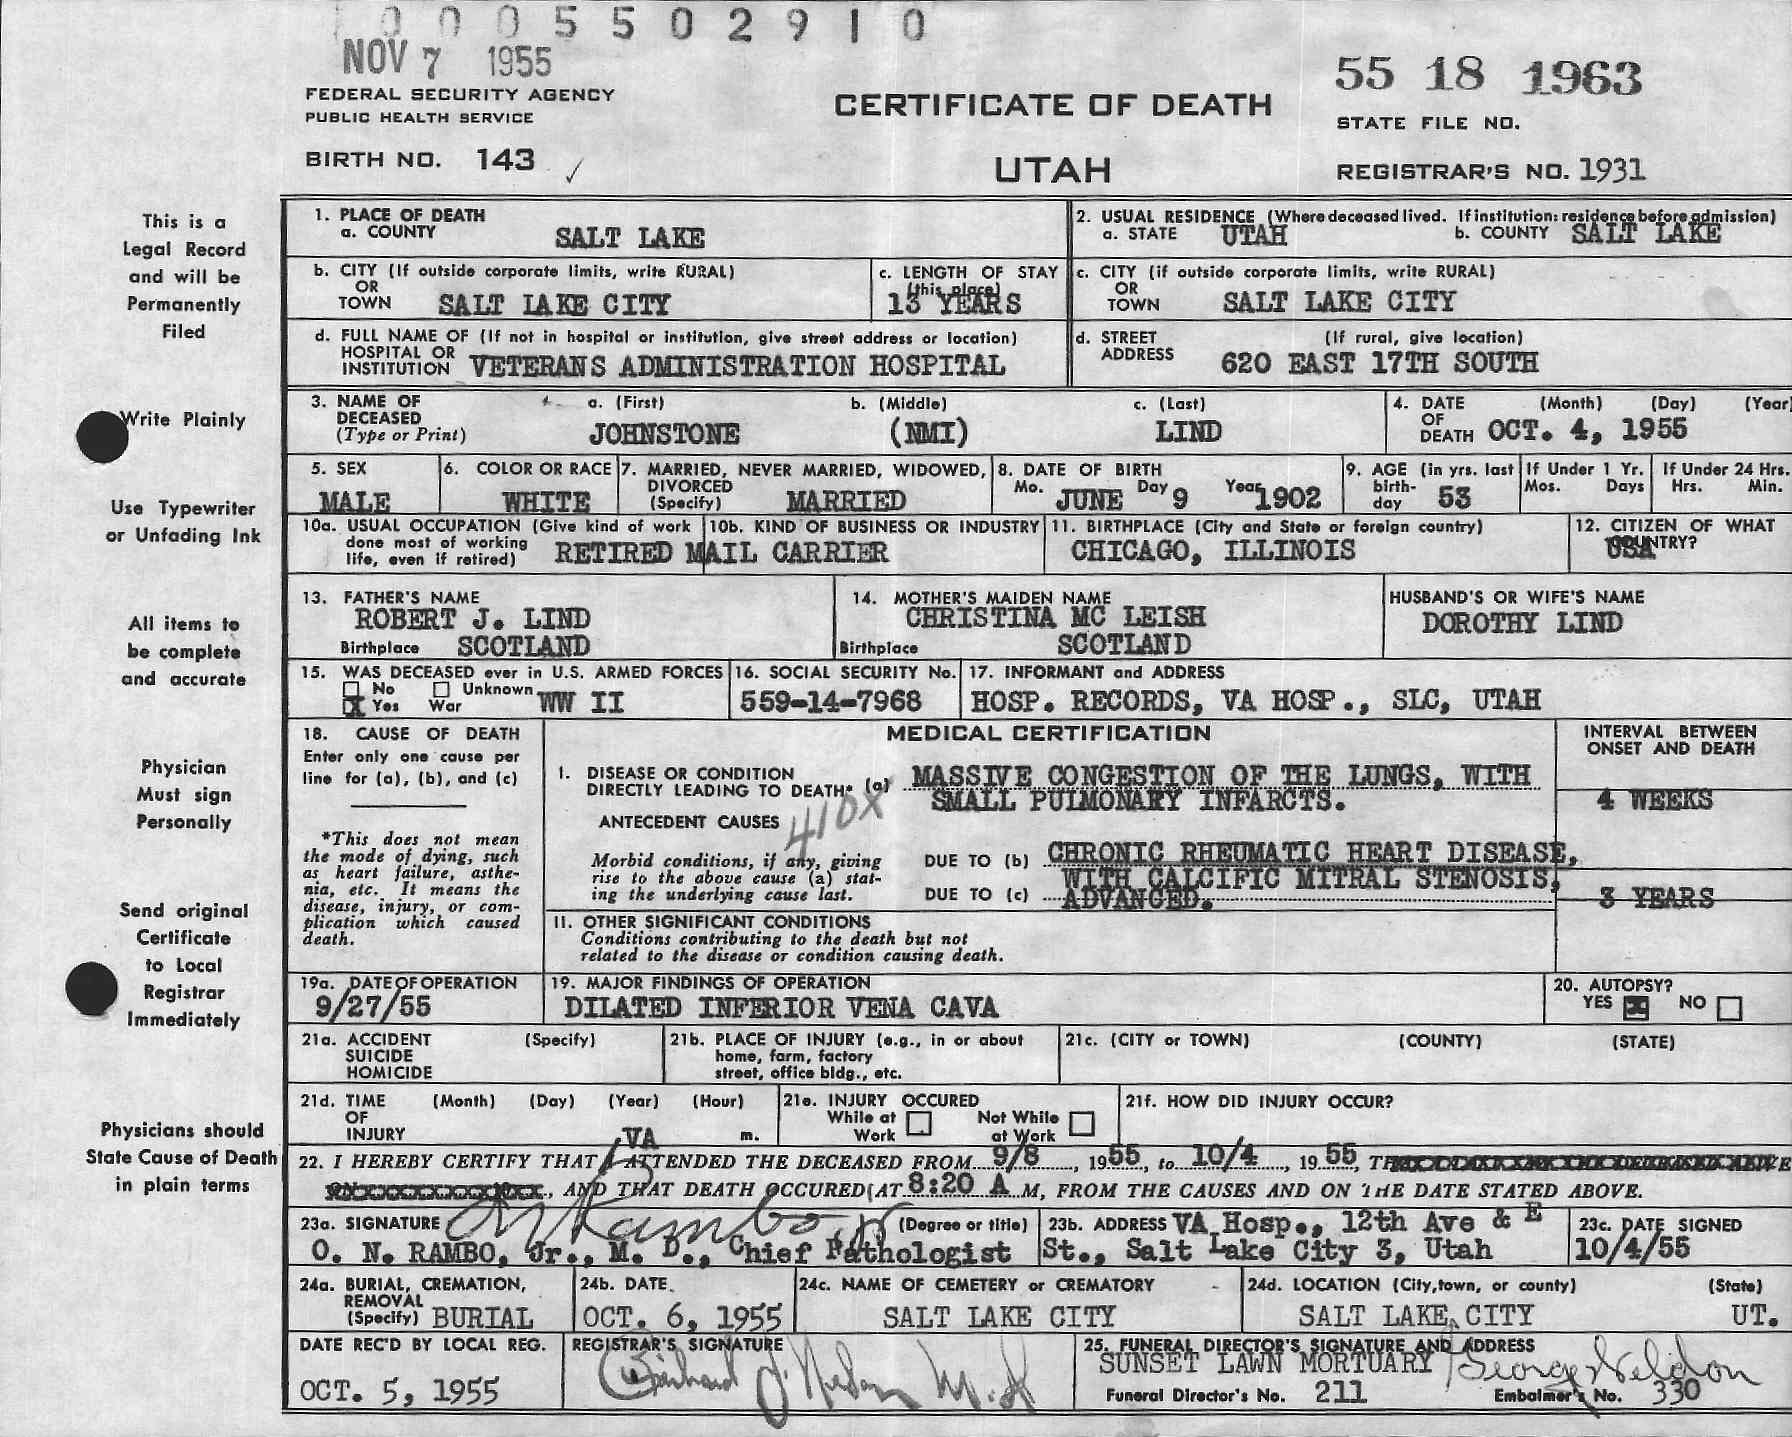 0005502910
NOV 7 1955
FEDERAL SECURITY AGENCY
PUBLIC HEALTH SERVICE
BIRTH NO. 143 ✓
CERTIFICATE OF DEATH
UTAH
55 18 1963
STATE FILE NO.
REGISTRAR'S NO. 1931
This is a
Legal Record
and will be
Permanently
Filed
Write Plainly
Use Typewriter
or Unfading Ink
All items to
be complete
and accurate
Physician
Must sign
Personally
Send original
Certificate
to Local
Registrar
Immediately
Physicians should
State Cause of Death
in plain terms
1. PLACE OF DEATH
a. COUNTY SALT LAKE
2. USUAL RESIDENCE (Where deceased lived. If institution: residence before admission)
a. STATE UTAH b. COUNTY SALT LAKE
b. CITY (If outside corporate limits, write RURAL)
OR
TOWN SALT LAKE CITY
c. LENGTH OF STAY
(this place)
13 YEARS
c. CITY (if outside corporate limits, write RURAL)
OR
TOWN SALT LAKE CITY
d. FULL NAME OF (If not in hospital or institution, give street address or location)
HOSPITAL OR
INSTITUTION VETERANS ADMINISTRATION HOSPITAL
d. STREET (If rural, give location)
ADDRESS 620 EAST 17TH SOUTH
3. NAME OF
DECEASED
(Type or Print)
a. (First) b. (Middle) c. (Last)
JOHNSTONE (NMI) LIND
4. DATE (Month) (Day) (Year)
OF
DEATH OCT. 4, 1955
5. SEX
MALE
6. COLOR OR RACE
WHITE
7. MARRIED, NEVER MARRIED, WIDOWED,
DIVORCED
(Specify) MARRIED
8. DATE OF BIRTH
Mo. JUNE Day 9 Year 1902
9. AGE (in yrs. last
birth-
day 53
If Under 1 Yr.
Mos. Days
If Under 24 Hrs.
Hrs. Min.
10a. USUAL OCCUPATION (Give kind of work
done most of working
life, even if retired)
10b. KIND OF BUSINESS OR INDUSTRY
RETIRED MAIL CARRIER
11. BIRTHPLACE (City and State or foreign country)
CHICAGO, ILLINOIS
12. CITIZEN OF WHAT
COUNTRY?
USA
13. FATHER'S NAME
ROBERT J. LIND
Birthplace SCOTLAND
14. MOTHER'S MAIDEN NAME
CHRISTINA MC LEISH
Birthplace SCOTLAND
HUSBAND'S OR WIFE'S NAME
DOROTHY LIND
15. WAS DECEASED ever in U.S. ARMED FORCES
No Unknown
X Yes War WW II
16. SOCIAL SECURITY No.
559-14-7968
17. INFORMANT and ADDRESS
HOSP. RECORDS, VA HOSP., SLC, UTAH
18. CAUSE OF DEATH
Enter only one cause per
line for (a), (b), and (c)
*This does not mean
the mode of dying, such
as heart failure, asthe-
nia, etc. It means the
disease, injury, or com-
plication which caused
death.
MEDICAL CERTIFICATION
I. DISEASE OR CONDITION
DIRECTLY LEADING TO DEATH* (a) MASSIVE CONGESTION OF THE LUNGS, WITH
SMALL PULMONARY INFARCTS.
ANTECEDENT CAUSES
410X
Morbid conditions, if any, giving
rise to the above cause (a) stat-
ing the underlying cause last.
DUE TO (b) CHRONIC RHEUMATIC HEART DISEASE,
WITH CALCIFIC MITRAL STENOSIS,
DUE TO (c) ADVANCED.
INTERVAL BETWEEN
ONSET AND DEATH
4 WEEKS
3 YEARS
II. OTHER SIGNIFICANT CONDITIONS
Conditions contributing to the death but not
related to the disease or condition causing death.
19a. DATE OF OPERATION
9/27/55
19. MAJOR FINDINGS OF OPERATION
DILATED INFERIOR VENA CAVA
20. AUTOPSY?
YES X NO
21a. ACCIDENT (Specify)
SUICIDE
HOMICIDE
21b. PLACE OF INJURY (e.g., in or about
home, farm, factory
street, office bldg., etc.
21c. (CITY or TOWN) (COUNTY) (STATE)
21d. TIME (Month) (Day) (Year) (Hour)
OF
INJURY m.
21e. INJURY OCCURED
While at Not While
Work at Work
21f. HOW DID INJURY OCCUR?
VA
22. I HEREBY CERTIFY THAT ATTENDED THE DECEASED FROM 9/8, 1955, to 10/4, 1955,
AND THAT DEATH OCCURED AT 8:20 A M, FROM THE CAUSES AND ON THE DATE STATED ABOVE.
23a. SIGNATURE O N Rambo Jr (Degree or title)
O. N. RAMBO, Jr., M. D., Chief Pathologist
23b. ADDRESS VA Hosp., 12th Ave & E
St., Salt Lake City 3, Utah
23c. DATE SIGNED
10/4/55
24a. BURIAL, CREMATION,
REMOVAL
(Specify) BURIAL
24b. DATE
OCT. 6, 1955
24c. NAME OF CEMETERY or CREMATORY
SALT LAKE CITY
24d. LOCATION (City, town, or county) (State)
SALT LAKE CITY UT.
DATE REC'D BY LOCAL REG.
OCT. 5, 1955
REGISTRAR'S SIGNATURE
25. FUNERAL DIRECTOR'S SIGNATURE AND ADDRESS
SUNSET LAWN MORTUARY
Funeral Director's No. 211 Embalmer's No. 330